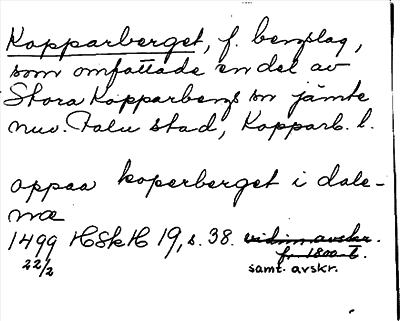 Kopparberget, f. bergslag,
som omfattade en del av
Stora Kopparbergs sn jämte
nuv. Falu stad, Kopparb. l.
oppaa koperberget i dale-
næ
1499 HSkH 19, s. 38. vidim.avskr.
22/2 fr. 1800-t.
samt. avskr.